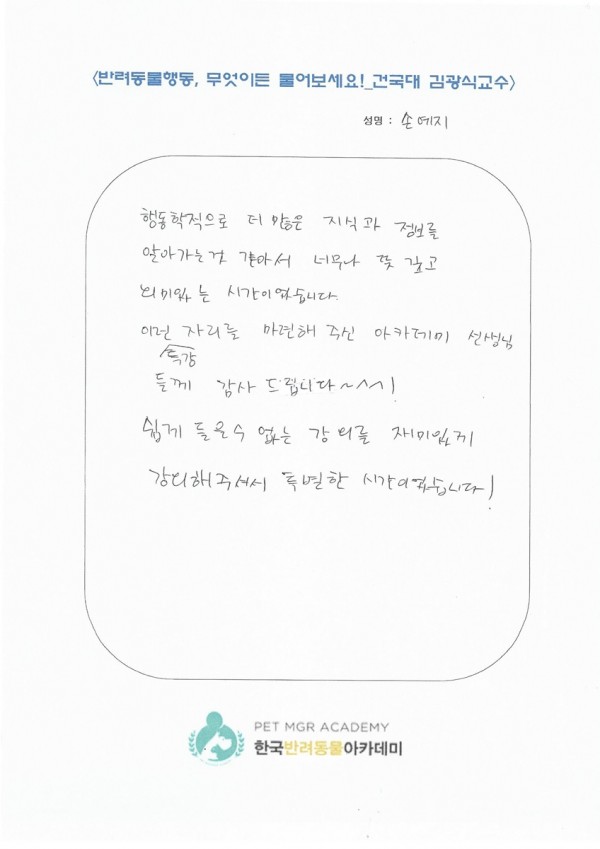 <반려동물행동, 무엇이든 물어보세요!_건국대 김광식교수>
성명 : 손예지
행동학적으로 더 많은 지식과 정보를
알아가는것 같아서 너무나 뜻 깊고
의미있는 시간이였습니다.
이런 자리를 마련해 주신 아카데미 선생님
특강
들께 감사 드립니다~^^!
쉽게 들을수 없는 강의를 재미있게
강의해주셔서 특별한 시간이였습니다!
PET MGR ACADEMY
한국반려동물아카데미